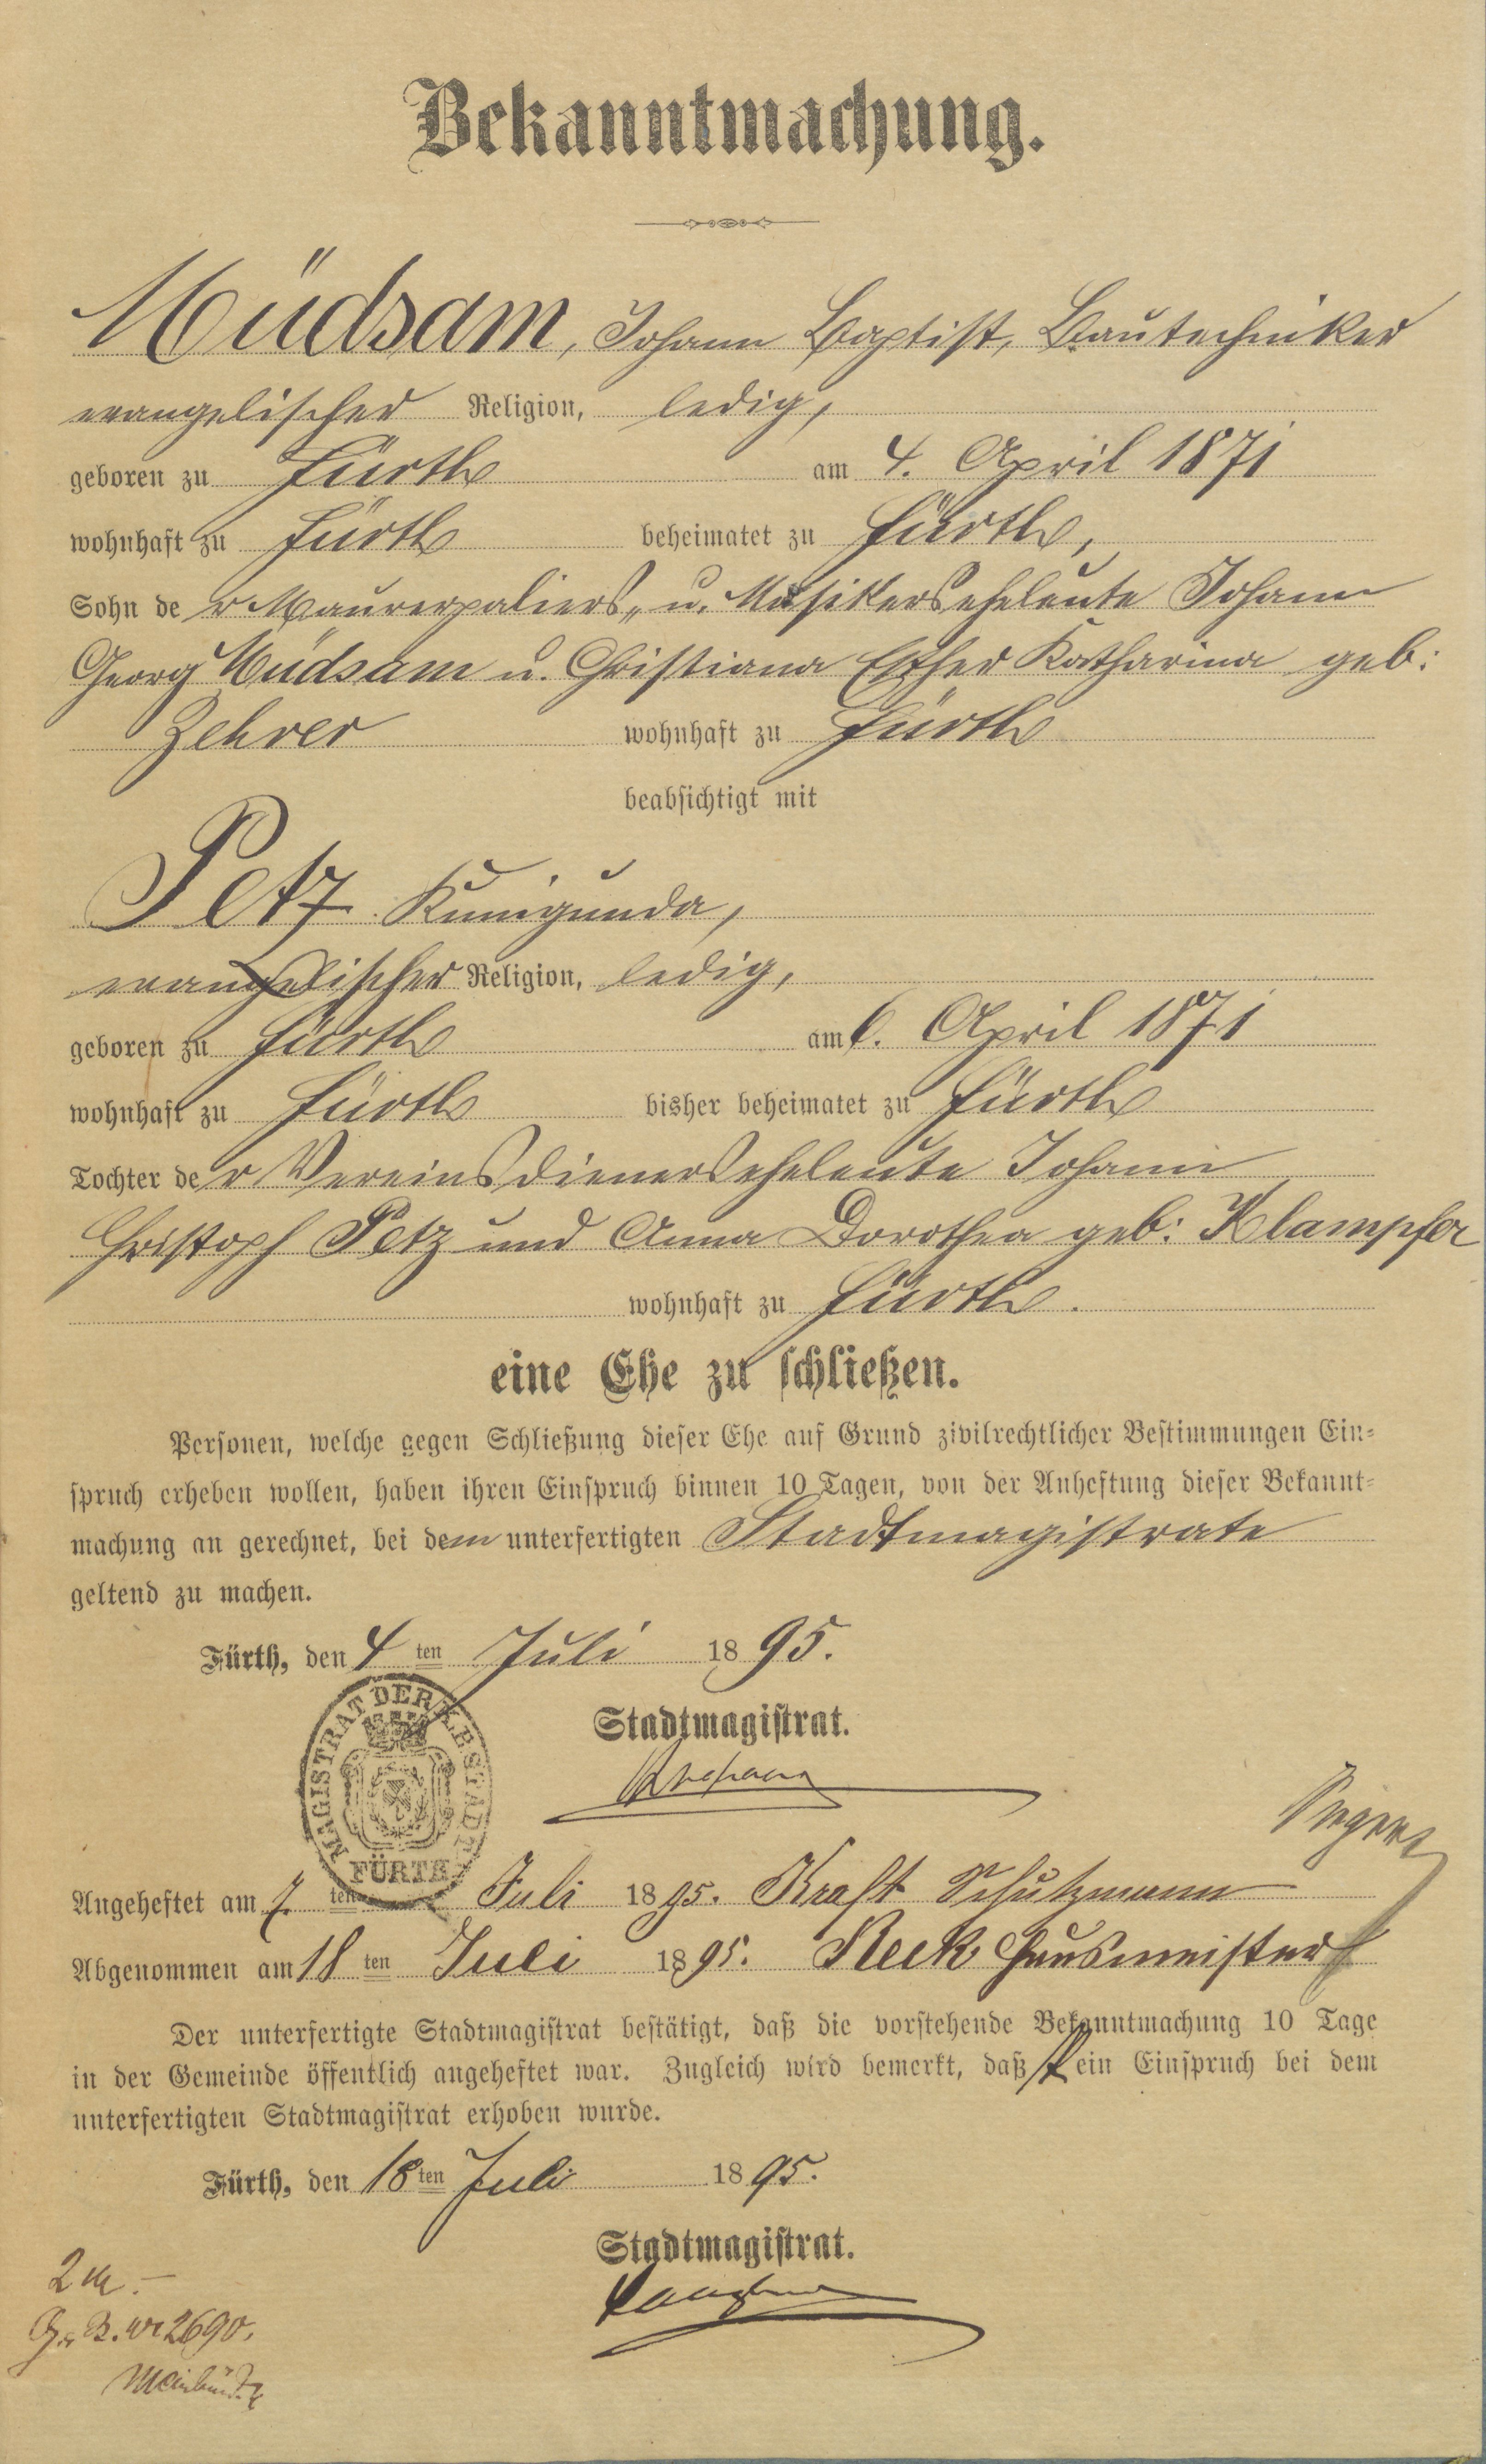 Bekanntmachung.
Müdsam, Johann Baptist, Bautechniker
evangelischer Religion, ledig,
geboren zu Fürth am 4. April 1871
wohnhaft zu Fürth beheimatet zu Fürth,
Sohn der Maurerpaliers- u. Musikerseheleute Johann
Georg Müdsam u. Christiana Esther Katharina geb:
Zehrer wohnhaft zu Fürth
beabsichtigt mit
Petz Kunigunda,
evangelischer Religion, ledig,
geboren zu Fürth am 6. April 1871
wohnhaft zu Fürth bisher beheimatet zu Fürth
Tochter der Vereinsdienerseheleute Johann
Christoph Petz und Anna Dorothea geb: Klampfer
wohnhaft zu Fürth.
eine Ehe zu schließen.
Personen, welche gegen Schließung dieser Ehe auf Grund zivilrechtlicher Bestimmungen Ein-
spruch erheben wollen, haben ihren Einspruch binnen 10 Tagen, von der Anheftung dieser Bekannt-
machung an gerechnet, bei dem unterfertigten Stadtmagistrate
geltend zu machen.
Fürth, den 4ten Juli 1895.
MAGISTRAT DER K.B. STADT FÜRTH
Stadtmagistrat.
Angeheftet am 7.ten Juli 1895. Kraft Schutzmann
Abgenommen am 18ten Juli 1895. Reck Hausmeister
Der unterfertigte Stadtmagistrat bestätigt, daß die vorstehende Bekanntmachung 10 Tage
in der Gemeinde öffentlich angeheftet war. Zugleich wird bemerkt, daß kein Einspruch bei dem
unterfertigten Stadtmagistrat erhoben wurde.
Fürth, den 18ten Juli 1895.
Stadtmagistrat.
2 M.-
2690.